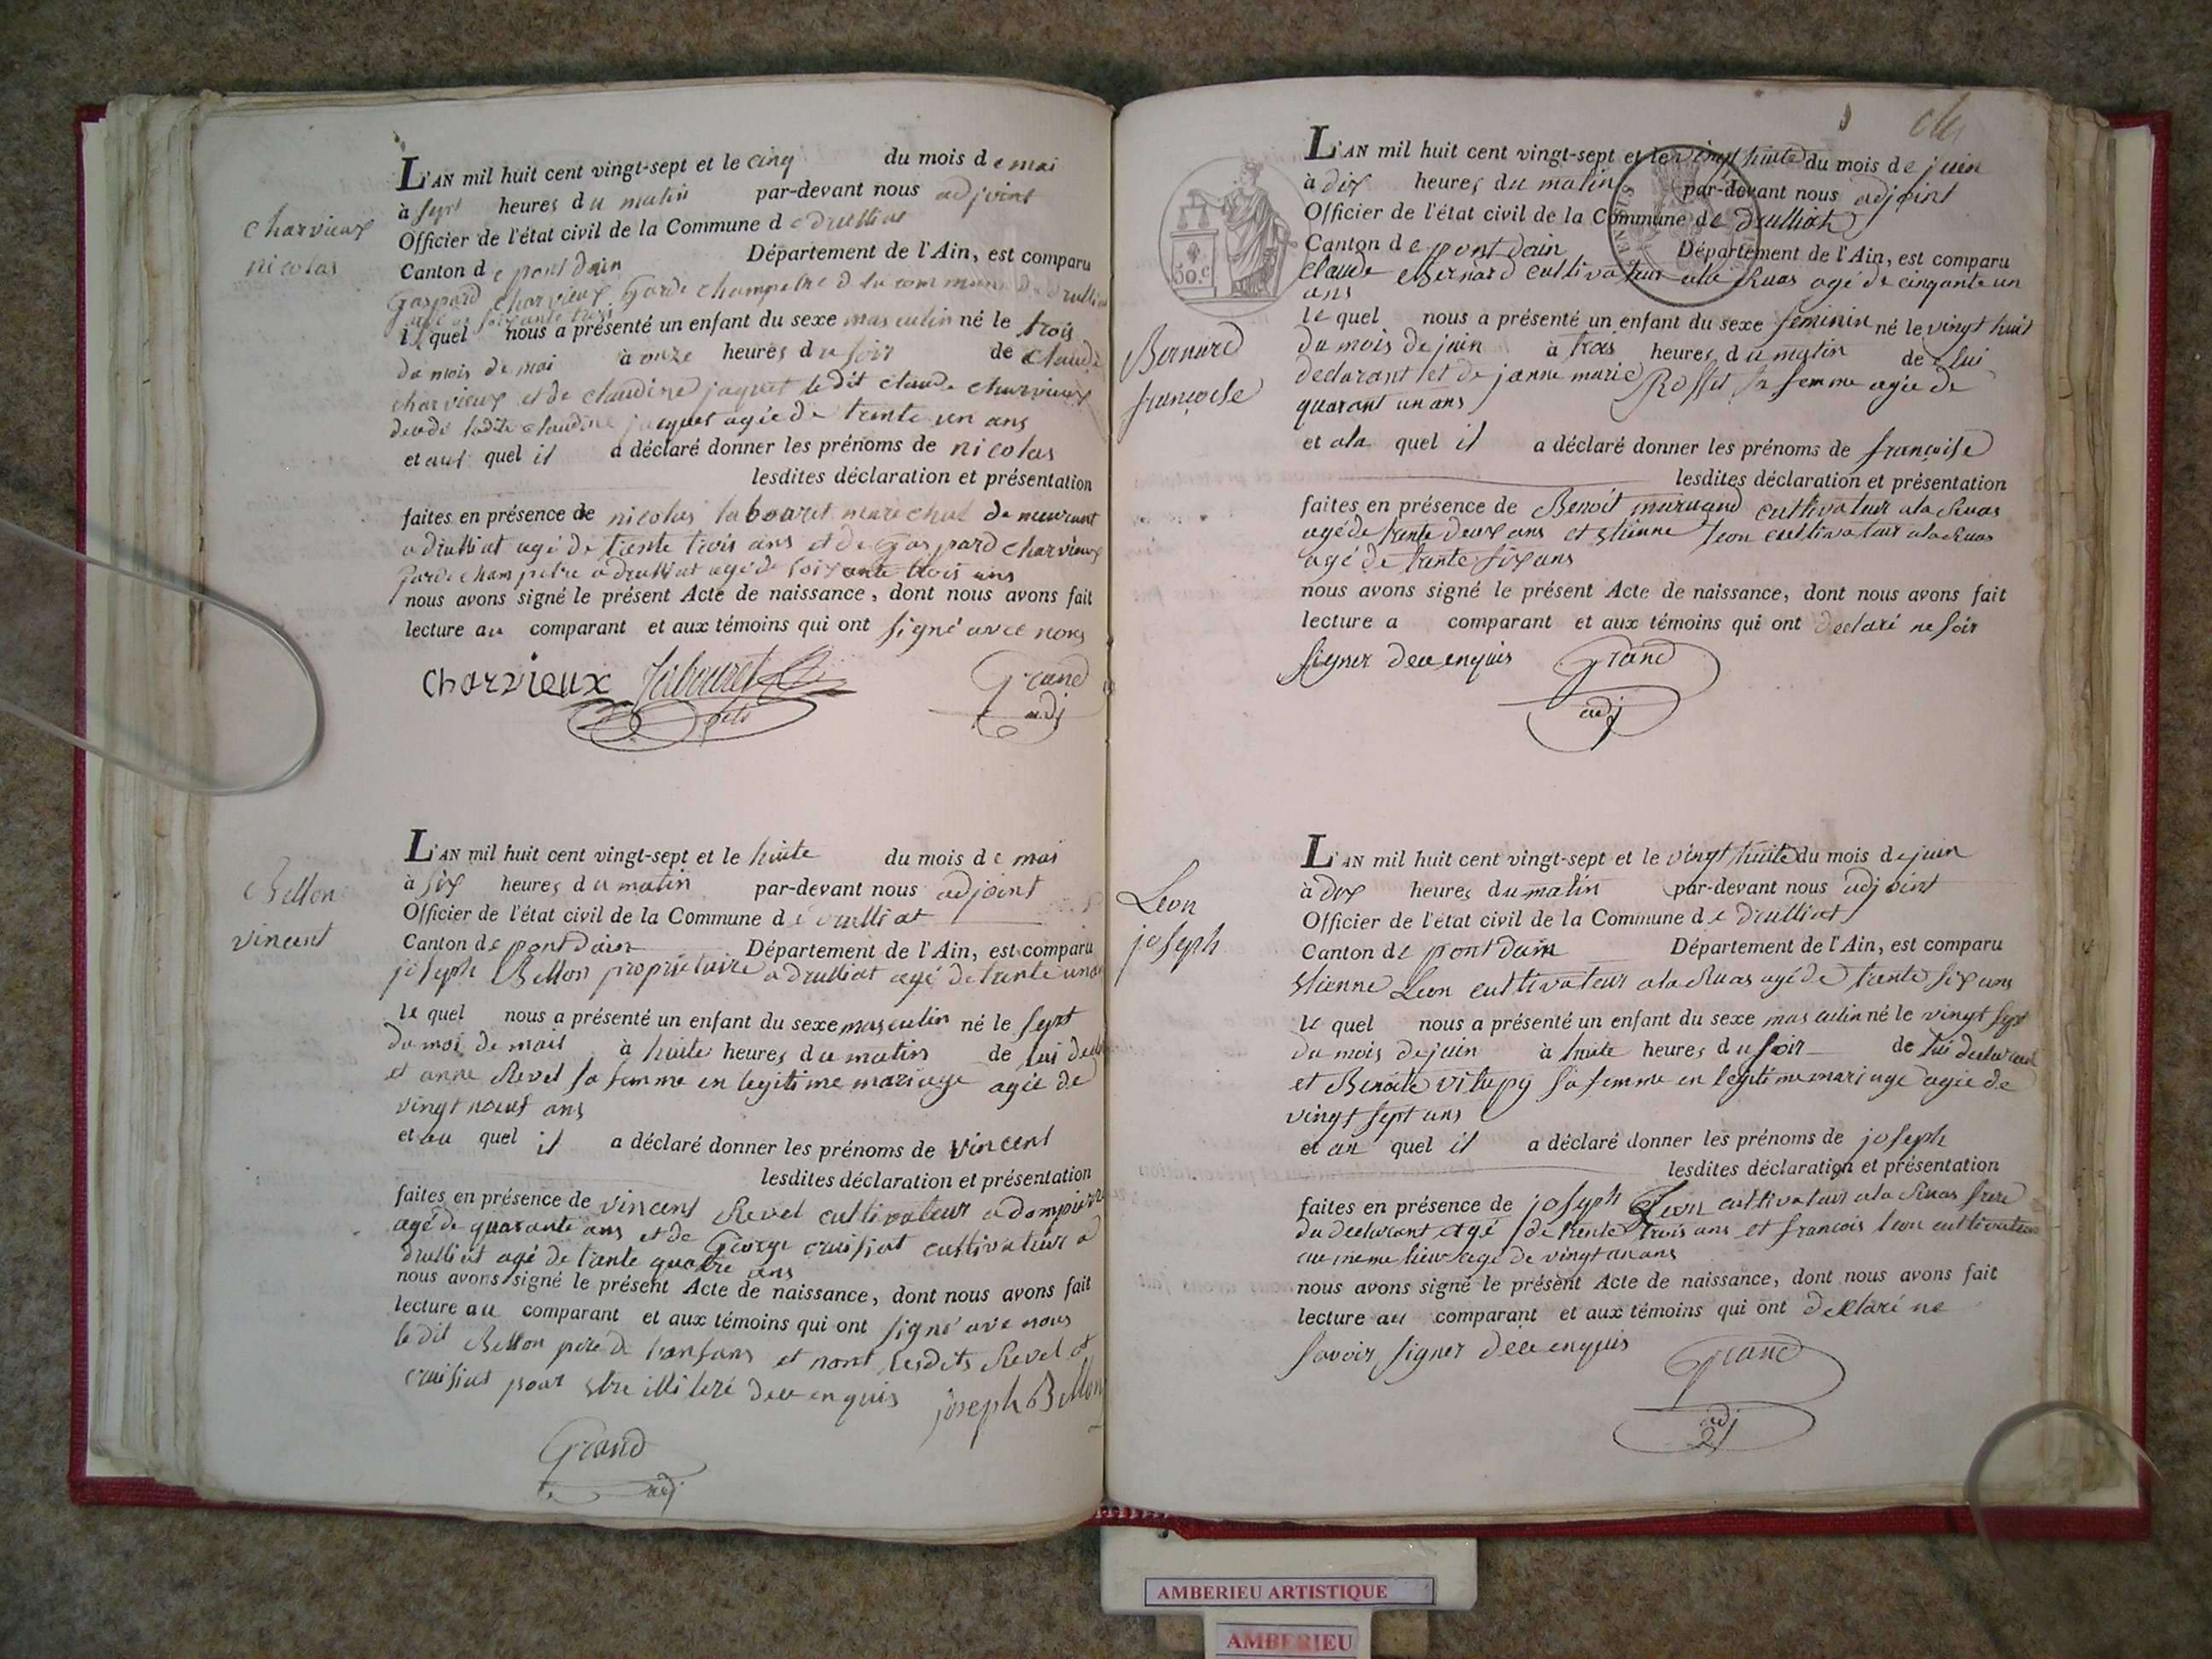 charvieux
nicolas
L'AN mil huit cent vingt-sept et le cinq du mois de mai
à sept heures du matin par-devant nous adjoint
Officier de l'état civil de la Commune de druillat
Canton de pont dain Département de l'Ain, est comparu
Gaspard charvieux garde champetre d la commune de druillat
agé de soixante trois
le quel nous a présenté un enfant du sexe masculin né le trois
du mois de mai à onze heures du soir de claude
charvieux et de claudine jaquet ledit claude charvieux
decede ladite claudine jacquet agée de trente un ans
et aut quel il a déclaré donner les prénoms de nicolas
lesdites déclaration et présentation
faites en présence de nicolas labouret marechal demeurant
a druillat agé de trente trois ans et de Gaspard charvieux
garde champetre a druillat agé de soixante trois ans
nous avons signé le présent Acte de naissance, dont nous avons fait
lecture au comparant et aux témoins qui ont signé avec nous
Charvieux Labouret fils Grand
adj
Bellon
vincent
L'AN mil huit cent vingt-sept et le huite du mois de mai
à six heures du matin par-devant nous adjoint
Officier de l'état civil de la Commune de druillat
Canton de pont dain Département de l'Ain, est comparu
joseph Bellon proprietaire a druillat agé de trente un
le quel nous a présenté un enfant du sexe masculin né le sept
du moi de mait à huite heures du matin de lui
et anne Revel sa femme en legitime mariage agée de
vingt neuf ans
et au quel il a déclaré donner les prénoms de vincent
lesdites déclaration et présentation
faites en présence de vincent Revel cultivateur a dompierre
agé de quarante ans et de George cruisiat cultivateur a
druillat agé de trante quatre ans
nous avons signé le présent Acte de naissance, dont nous avons fait
lecture au comparant et aux témoins qui ont signé ave nous
le dit Bellon pere de lanfans et nont lesdits Revel et
cruisiat pour etre illiteré de ce enquis joseph Bellon
Grand
adj
L'AN mil huit cent vingt-sept et le vingt huite du mois de juin
à dix heures du matin par-devant nous adjoint
Officier de l'état civil de la Commune de druillat
Canton de pont dain Département de l'Ain, est comparu
50.c
claude Bernard cultivateur a la Ruas agé de cinqante un
ans
Bernard
françoise
le quel nous a présenté un enfant du sexe feminin né le vingt huit
du mois de juin à trois heures du matin de lui
declarant et de janne marie Rosset sa femme agée de
quarant un ans
et ala quel il a déclaré donner les prénoms de françoise
lesdites déclaration et présentation
faites en présence de Benoit cultivateur ala Ruas
agé de trente deux ans et etienne leon cultivateur ala Ruas
agé de trente six ans
nous avons signé le présent Acte de naissance, dont nous avons fait
lecture a comparant et aux témoins qui ont declaré ne
signer de ce enquis Grand
adj
Leon
joseph
L'AN mil huit cent vingt-sept et le vingt huite du mois de juin
à dix heures du matin par-devant nous adjoint
Officier de l'état civil de la Commune de druillat
Canton de pont dain Département de l'Ain, est comparu
etienne Leon cultivateur ala Ruas agé de trente six ans
le quel nous a présenté un enfant du sexe masculin né le vingt sept
du mois de juin à huite heures du soir de lui declarant
et Benoite sa femme en legitime mariage agée de
vingt sept ans
et au quel il a déclaré donner les prénoms de joseph
lesdites déclaration et présentation
faites en présence de joseph Leon cultivateur ala Ruas frere
du declarant agé de trente trois ans et francois leon cultivateur
au meme lieu agé de vingt ans
nous avons signé le présent Acte de naissance, dont nous avons fait
lecture au comparant et aux témoins qui ont declaré ne
savoir signer de ce enquis Grand
adj
AMBERIEU ARTISTIQUE
AMBERIEU